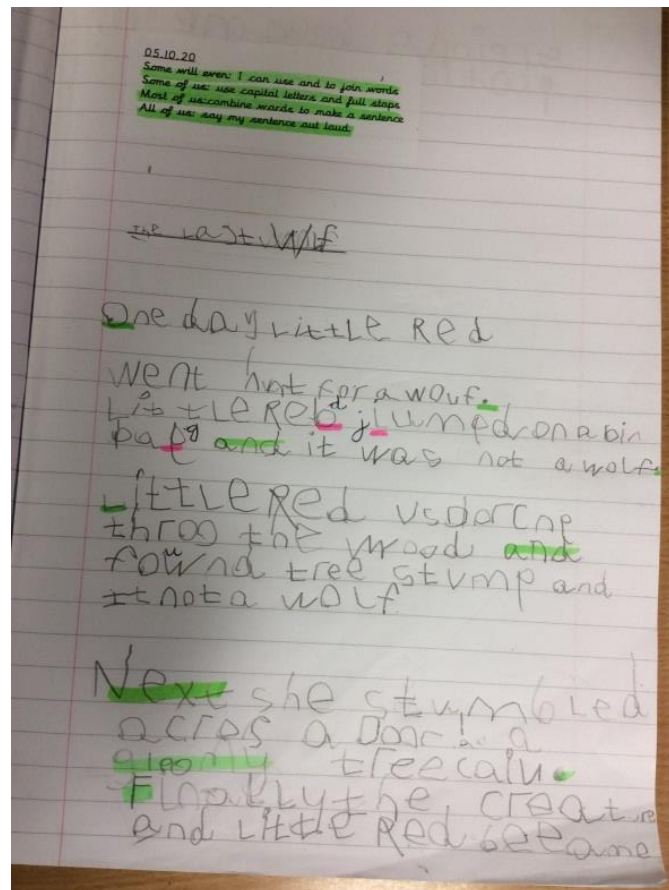 05.10.20
Some will even: I can use and to join words
Some of us: use capital letters and full stops
Most of us: combine words to make a sentence
All of us: say my sentence out loud.
The Last Wlf
One day Little Red
went hunt for a wouf.
Little Reb d jumped on a bin
bag and it was not a wolf.
Little Red
throo the wood and
fownd tree stump and
it not a wolf
Next she stumbled
acros a Door a
gloomy tree
Finally the creature
and Little Red became